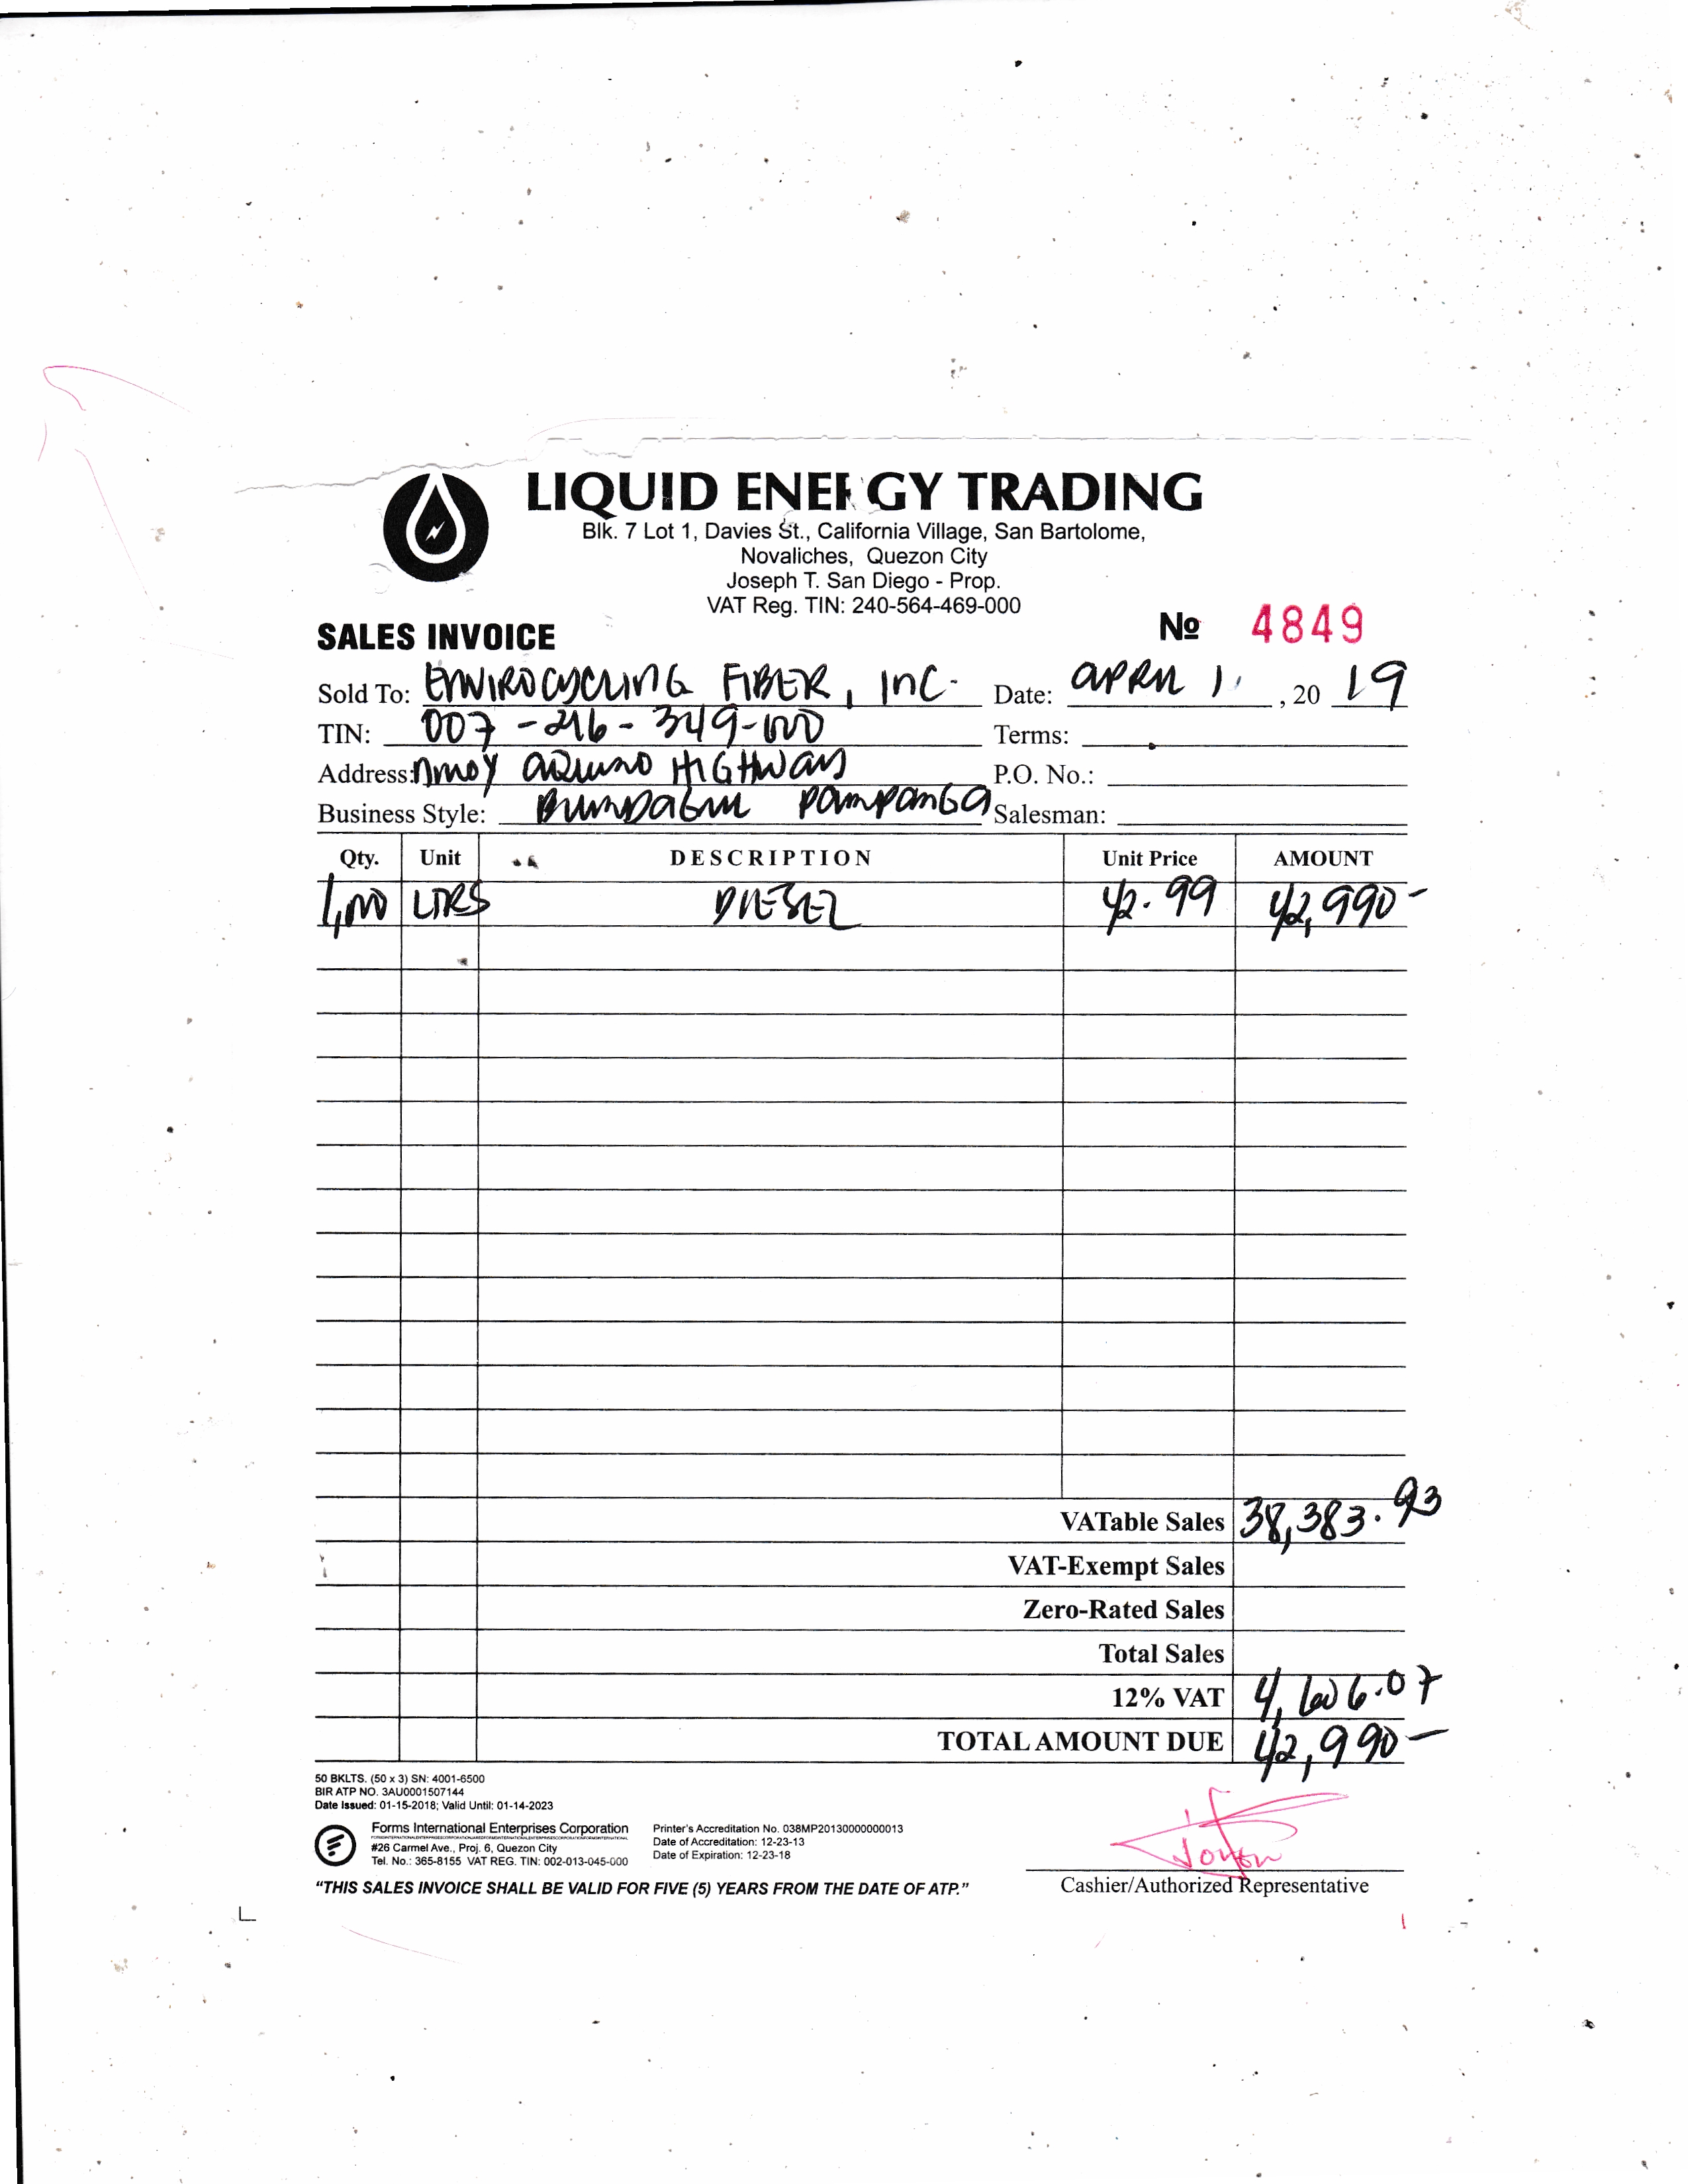 LIQUID ENERGY TRADING
Blk. 7 Lot 1, Davies St., California Village, San Bartolome,
Novaliches, Quezon City
Joseph T. San Diego - Prop.
VAT Reg. TIN: 240-564-469-000
SALES INVOICE № 4849
Sold To: ENVIROCYCLING FIBER, INC. Date: APRIL 1, 2019
TIN: 007-216-349-000 Terms:
Address: NINOY AQUINO HIGHWAY P.O. No.:
Business Style: PAMPANGA Salesman:
Qty. Unit DESCRIPTION Unit Price AMOUNT
1,000 LTRS DIESEL 42.99 42,990-
VATable Sales 38,383.93
VAT-Exempt Sales
Zero-Rated Sales
Total Sales
12% VAT 4,606.07
TOTAL AMOUNT DUE 42,990-
50 BKLTS. (50 x 3) SN: 4001-6500
BIR ATP NO. 3AU0001507144
Date Issued: 01-15-2018; Valid Until: 01-14-2023
Forms International Enterprises Corporation
#26 Carmel Ave., Proj. 6, Quezon City
Tel. No.: 365-8155 VAT REG. TIN: 002-013-045-000
Printer's Accreditation No. 038MP20130000000013
Date of Accreditation: 12-23-13
Date of Expiration: 12-23-18
"THIS SALES INVOICE SHALL BE VALID FOR FIVE (5) YEARS FROM THE DATE OF ATP."
Cashier/Authorized Representative